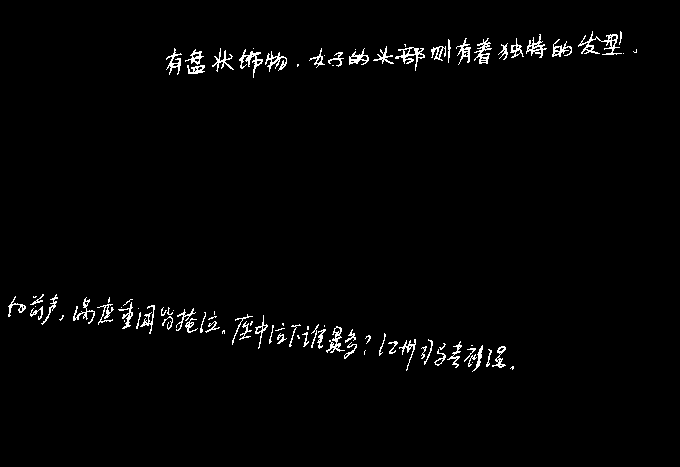 有盘状饰物．女子的头部则有着独特的发型．
向前声，满座重闻皆掩泣。座中泣下谁最多？江州司马青衫湿．